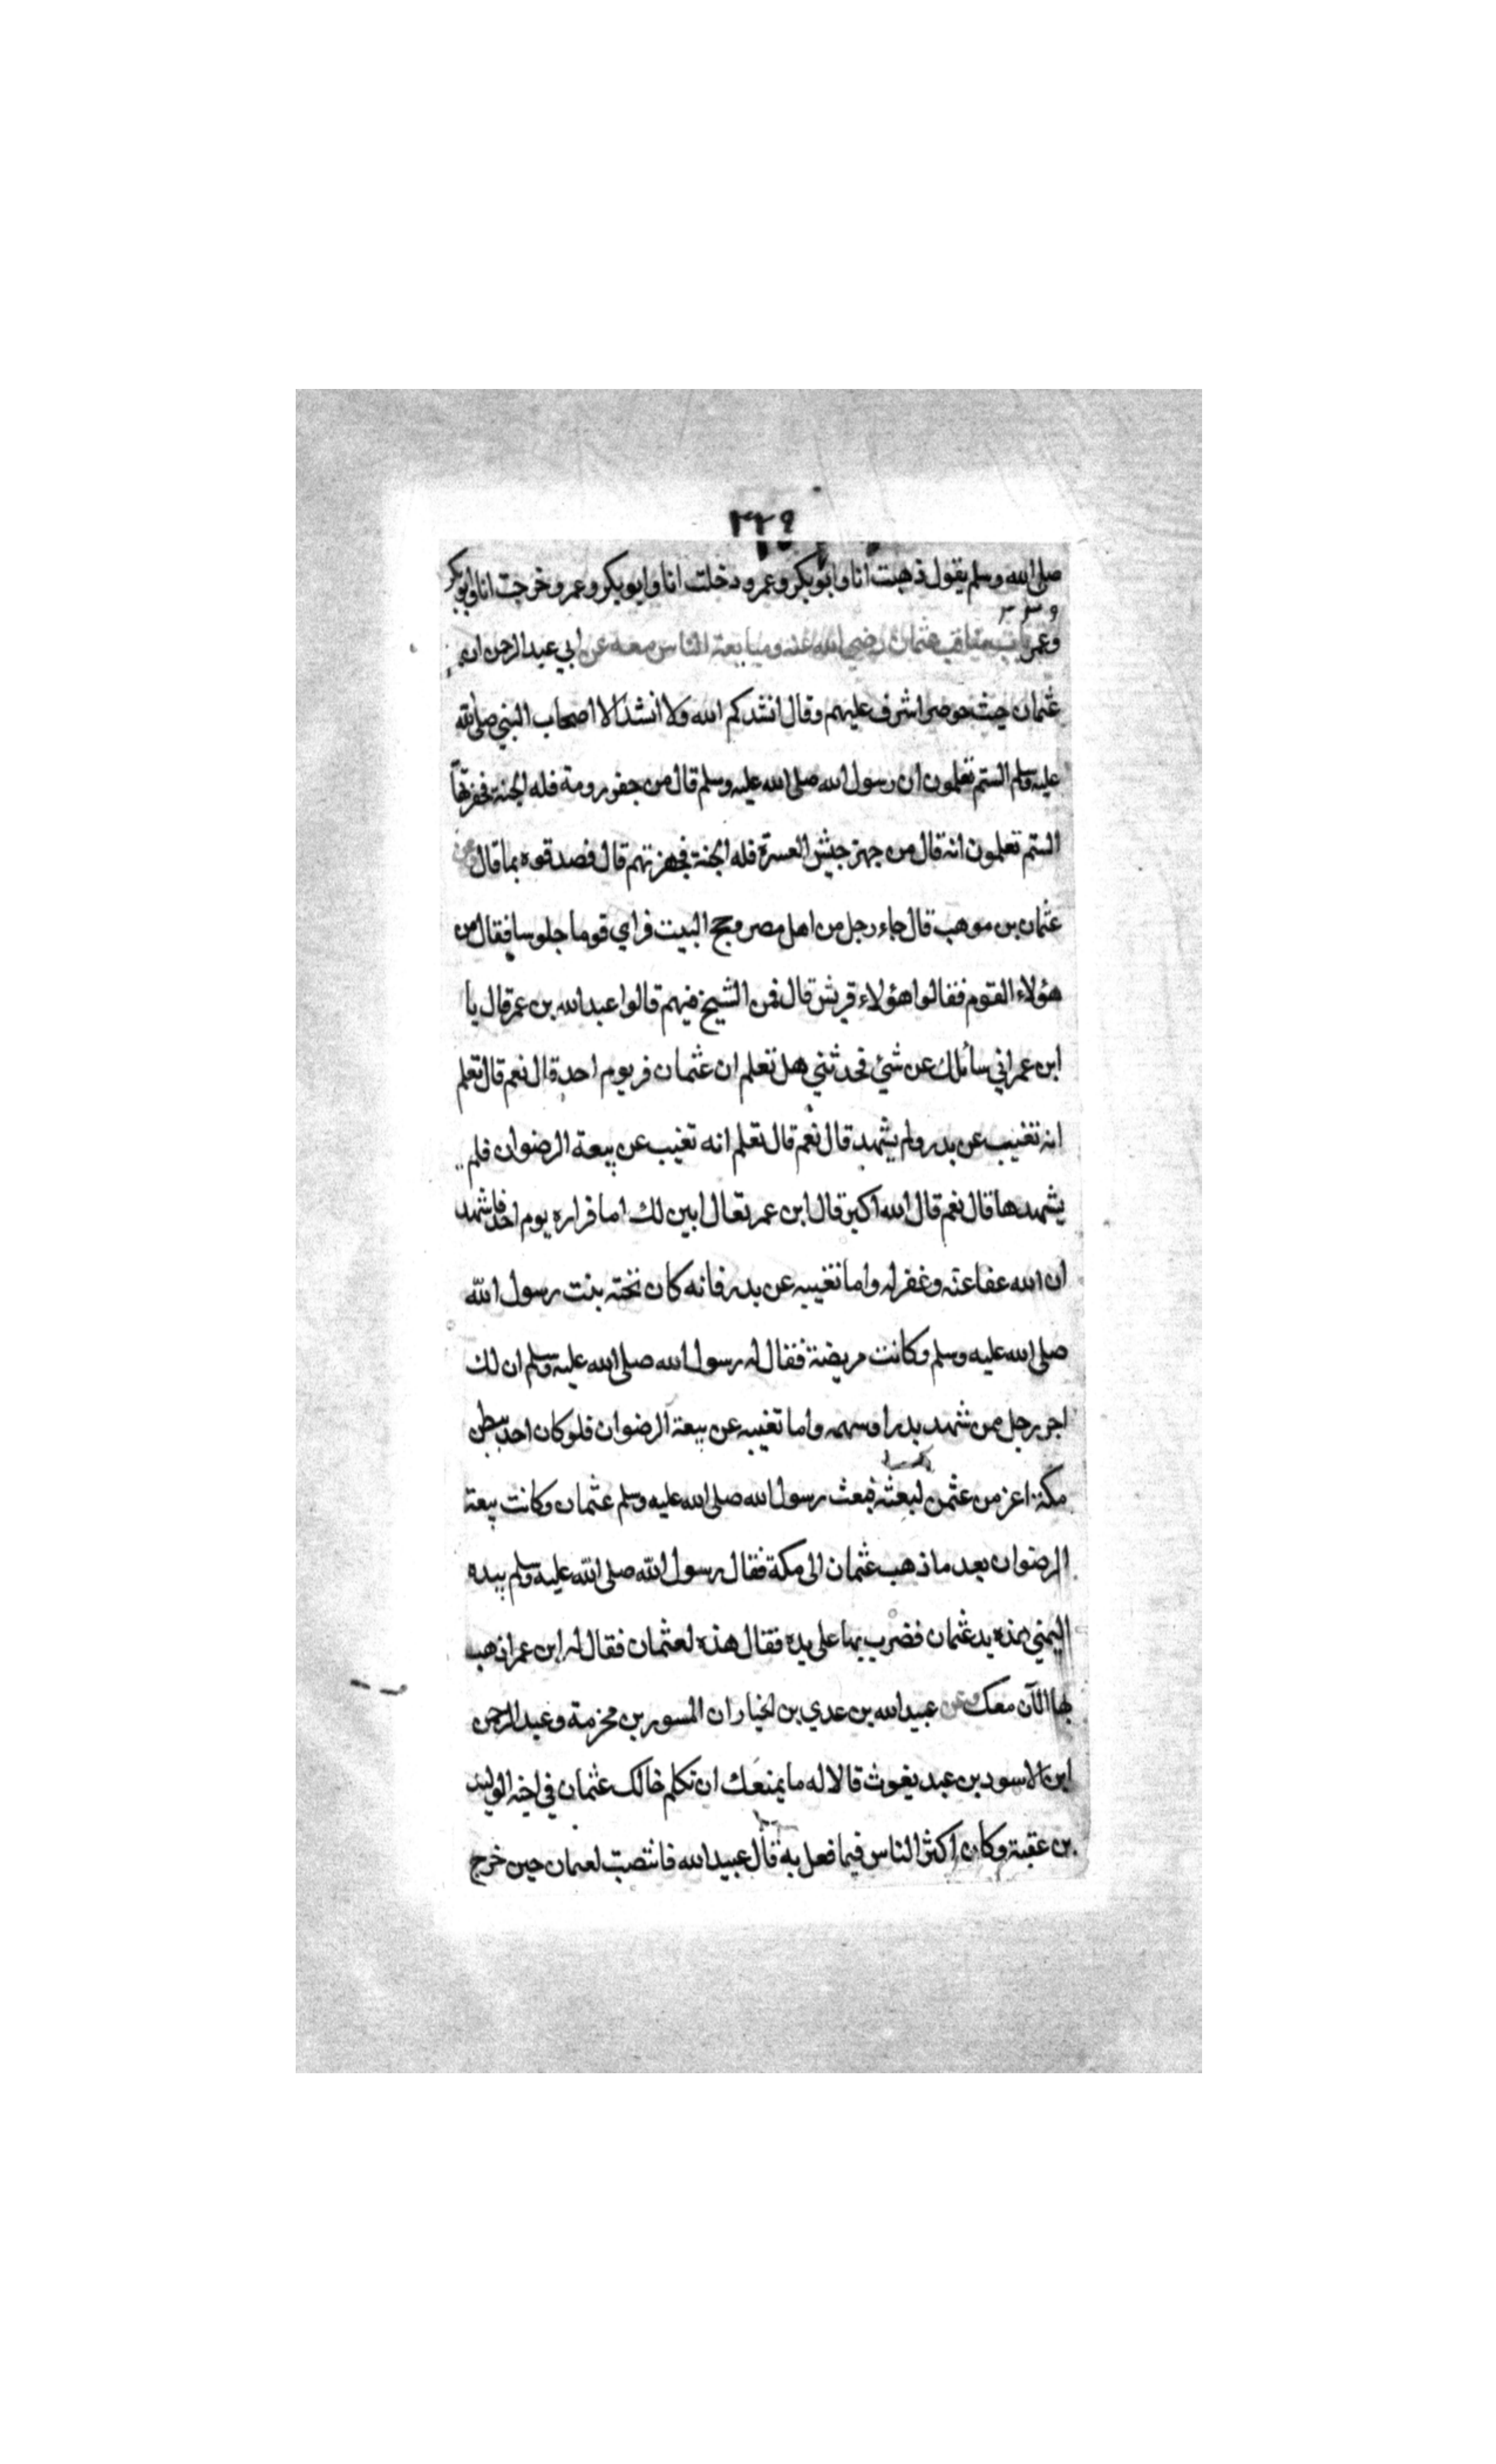 ٢٢٩
صلى الله وسلم يقول ذهبت انا وابو بكر وعمر ودخلت انا وابو بكر وعمر وخرجت انا وابو بكر
وعمر باب مناقب عثمان رضي الله عنه ومبايعة الناس معه عن ابي عبد الرحمن ان
عثمان حيث حوصر اشرف عليهم وقال انشدكم الله ولا انشد الا اصحاب النبي صلى الله
عليه وسلم الستم تعلمون ان رسول الله صلى الله عليه وسلم قال من حفر رومة فله الجنة فحفرتها
الستم تعلمون انه قال من جهز جيش العسرة فله الجنة فجهزتهم قال فصدقوه بما قال وعن
عثمان بن موهب قال جاء رجل من اهل مصر وحج البيت فراي قوما جلوسا فقال من
هؤلاء القوم فقالوا هؤلاء قريش قال فمن الشيخ فيهم قالوا عبد الله بن عمر قال يا
ابن عمر اني سائلك عن شئ فحدثني هل تعلم ان عثمان فر يوم احد قال نعم قال تعلم
انه تغيب عن بدر ولم يشهد قال نعم قال تعلم انه تغيب عن بيعة الرضوان فلم
يشهدها قال نعم قال الله اكبر قال ابن عمر تعال ابين لك اما فراره يوم احد فاشهد
ان الله عفا عنه وغفر له واما تغيبه عن بدر فانه كان تحته بنت رسول الله
صلى الله عليه وسلم وكانت مريضة فقال له رسول الله صلى الله عليه وسلم ان لك
اجر رجل ممن شهد بدرا وسهمه واما تغيبه عن بيعة الرضوان فلو كان احد ببطن
مكة اعز من عثمن لبعثه فبعث رسول الله صلى الله عليه وسلم عثمان وكانت بيعة
الرضوان بعد ما ذهب عثمان الى مكة فقال رسول الله صلى الله عليه وسلم بيده
اليمني هذه يد عثمان فضرب بها على يده فقال هذه لعثمان فقال له ابن عمر اذهب
بها الآن معك وعن عبيد الله بن عدي بن الخيار ان المسور بن مخرمة وعبد الرحمن
ابن الاسود بن عبد يغوث قالا له ما يمنعك ان تكلم خالك عثمان في اخيه الوليد
بن عقبة وكان اكثر الناس فيما فعل به قال عبيد الله فانتصبت لعثمان حين خرج